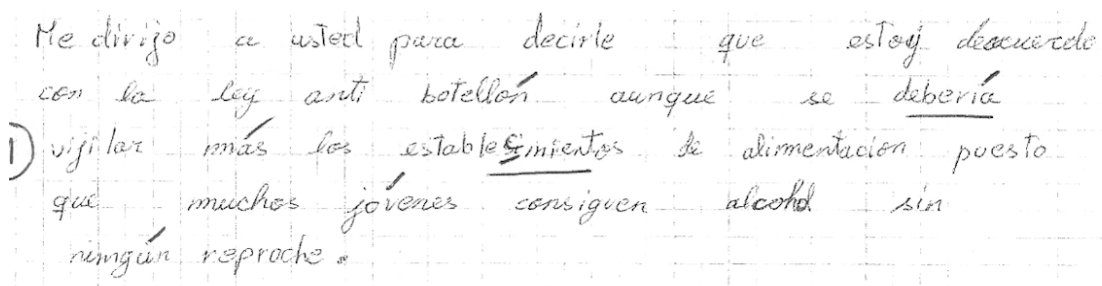 Me dirijo a usted para decirle que estoy deacuerdo
con la ley anti botellón aunque se debería
1 vijilar más los establecimientos de alimentacion puesto
que muchos jóvenes consiguen alcohol sin
nimgún reproche.